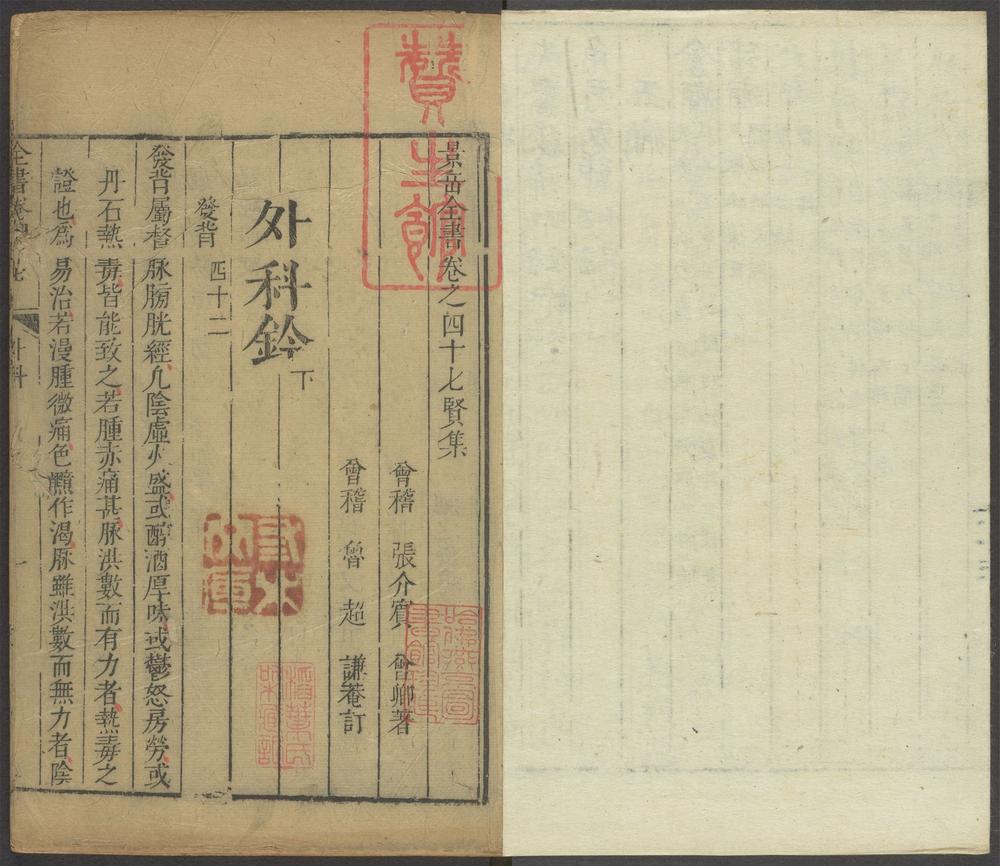 景岳全書卷之四十七賢集
會稽 張介賓 會卿著
會稽 魯超 謙菴訂
外科鈐下
發背 四十二
發背屬督脉膀胱經凡陰虛火盛或醇酒厚味或鬱怒房勞或
丹石熱毒皆能致之若腫赤痛甚脉洪數而有力者熱毒之
證也為易治若漫腫微痛色黯作渴脉雖洪數而無力者陰
全書卷
外科